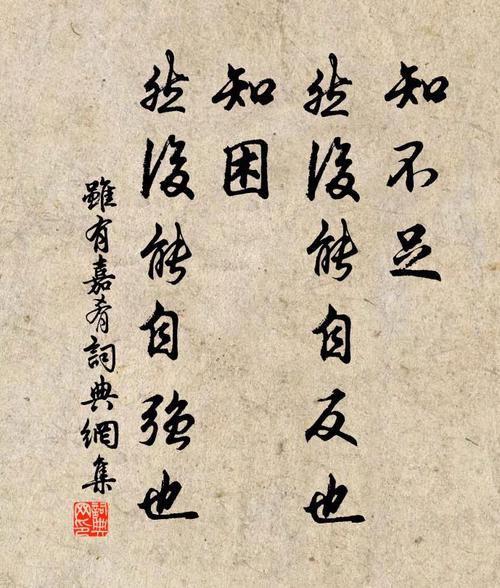 知不足
然後能自反也
知困
然後能自強也
雖有嘉肴詞典網集
詞典
网印